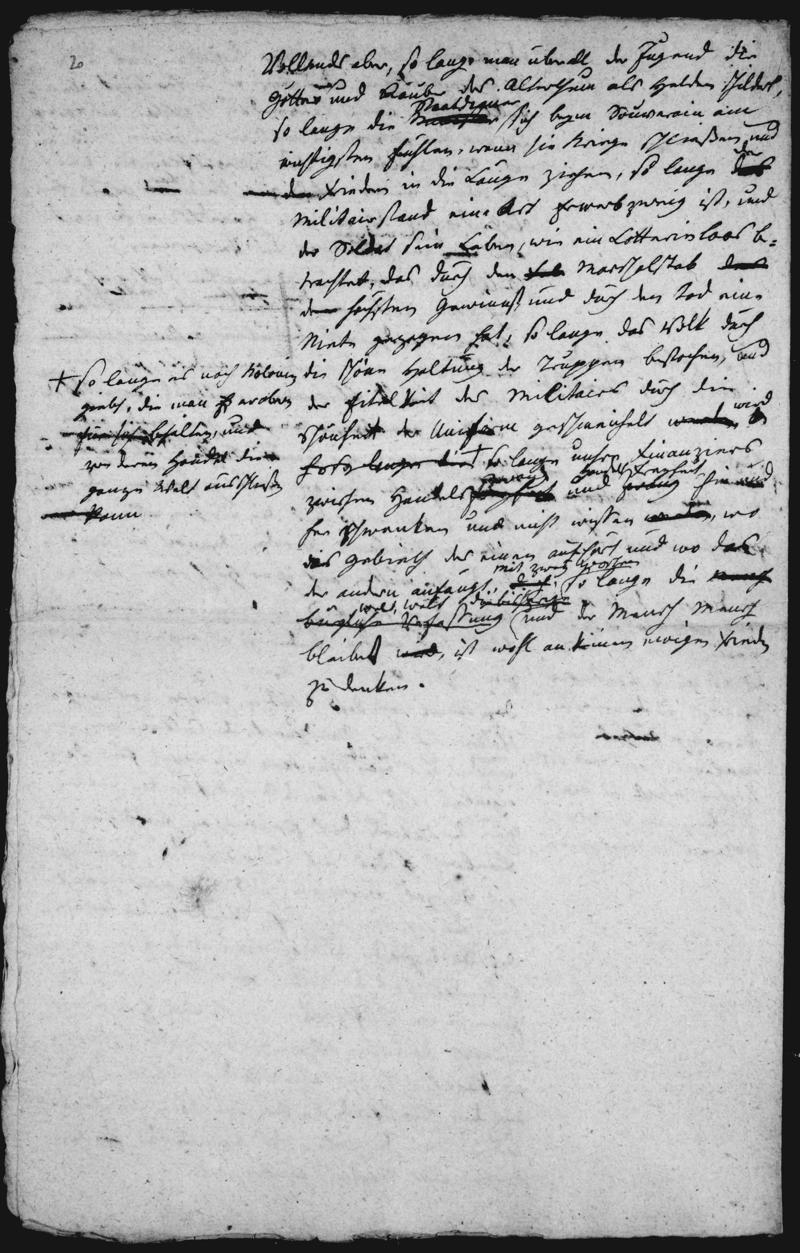 20
Vollends aber, so lange man überall der Jugend die
Götter und Räuber des Alterthum als Helden schildert,
Staatdiener
so lange die sich beym Souverain am
wichtigsten fühlen, wenn sie Kriege schließen und
den Frieden in die Länge ziehen, so lange der
Militairstand eine Art Erwerbzweig ist, und
der Soldat sein Leben, wie ein Lotterinloos be=
trachtet, das durch den Marschalstab
den höchsten Gewinnst und durch den Tod eine
Niete gezogen hat; so lange das Volk durch
die schöne Haltung der Truppen bestochen, und
der Eitelkeit des Militairs durch die
Schönheit der Uniform geschmeichelt wird
+ so lange unsre Finanziers
zwang Handelsfreyheit
zwischen Handels und hin und
her schwenken und nicht wissen, wo
das Gebieth der einen aufhört und wo das
mit zwey Worten
der andern anfängt, so lange die
Welt, Welt
bürgliche Verfassung und der Mensch Mensch
bleibet, ist wohl an keinen ewigen Frieden
zu denken.
+ so lange es noch Kolonien
giebt, die man erobern
für sich behalten, und
von deren Handel die
ganze Welt ausschließen
kann